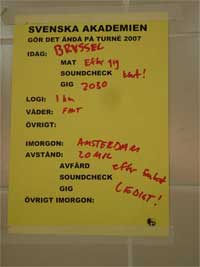 SVENSKA AKADEMIEN
GÖR DET ÄNDÅ PÅ TURNÉ 2007
IDAG: BRYSSEL
MAT Efter gig
SOUNDCHECK
GIG 2030
LOGI: 1 km
VÄDER: FINT
ÖVRIGT:
IMORGON: AMSTERDAM
AVSTÅND: 20 MIL
AVFÄRD efter
SOUNDCHECK
GIG LEDIGT!
ÖVRIGT IMORGON: